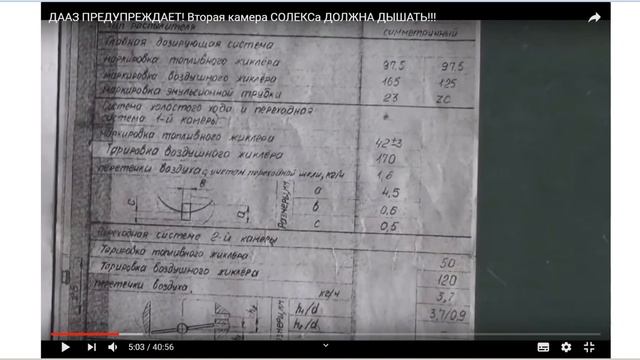 ДААЗ ПРЕДУПРЕЖДАЕТ! Вторая камера СОЛЕКСа ДОЛЖНА ДЫШАТЬ!!!
распылителя симметричный
Главная дозирующая система
маркировка топливного жиклёра 97.5 97.5
маркировка воздушного жиклёра 165 125
маркировка эмульсионной трубки 23 ZC
Система холостого хода и переходная
система 1-й камеры
маркировка топливного жиклёра 42±3
Тарировка воздушного жиклёра 170
перетечки воздуха с учетом переходной щели, кг/ч 1,6
Размеры, мм
a 4,5
b 0,6
c 0,5
в
с
а
переходная система 2-й камеры
Тарировка топливного жиклёра 50
Тарировка воздушного жиклёра 120
перетечки воздуха кг/ч 3,7
h₁/d 3,7/0,9
h₂/d
5:03 / 40:56